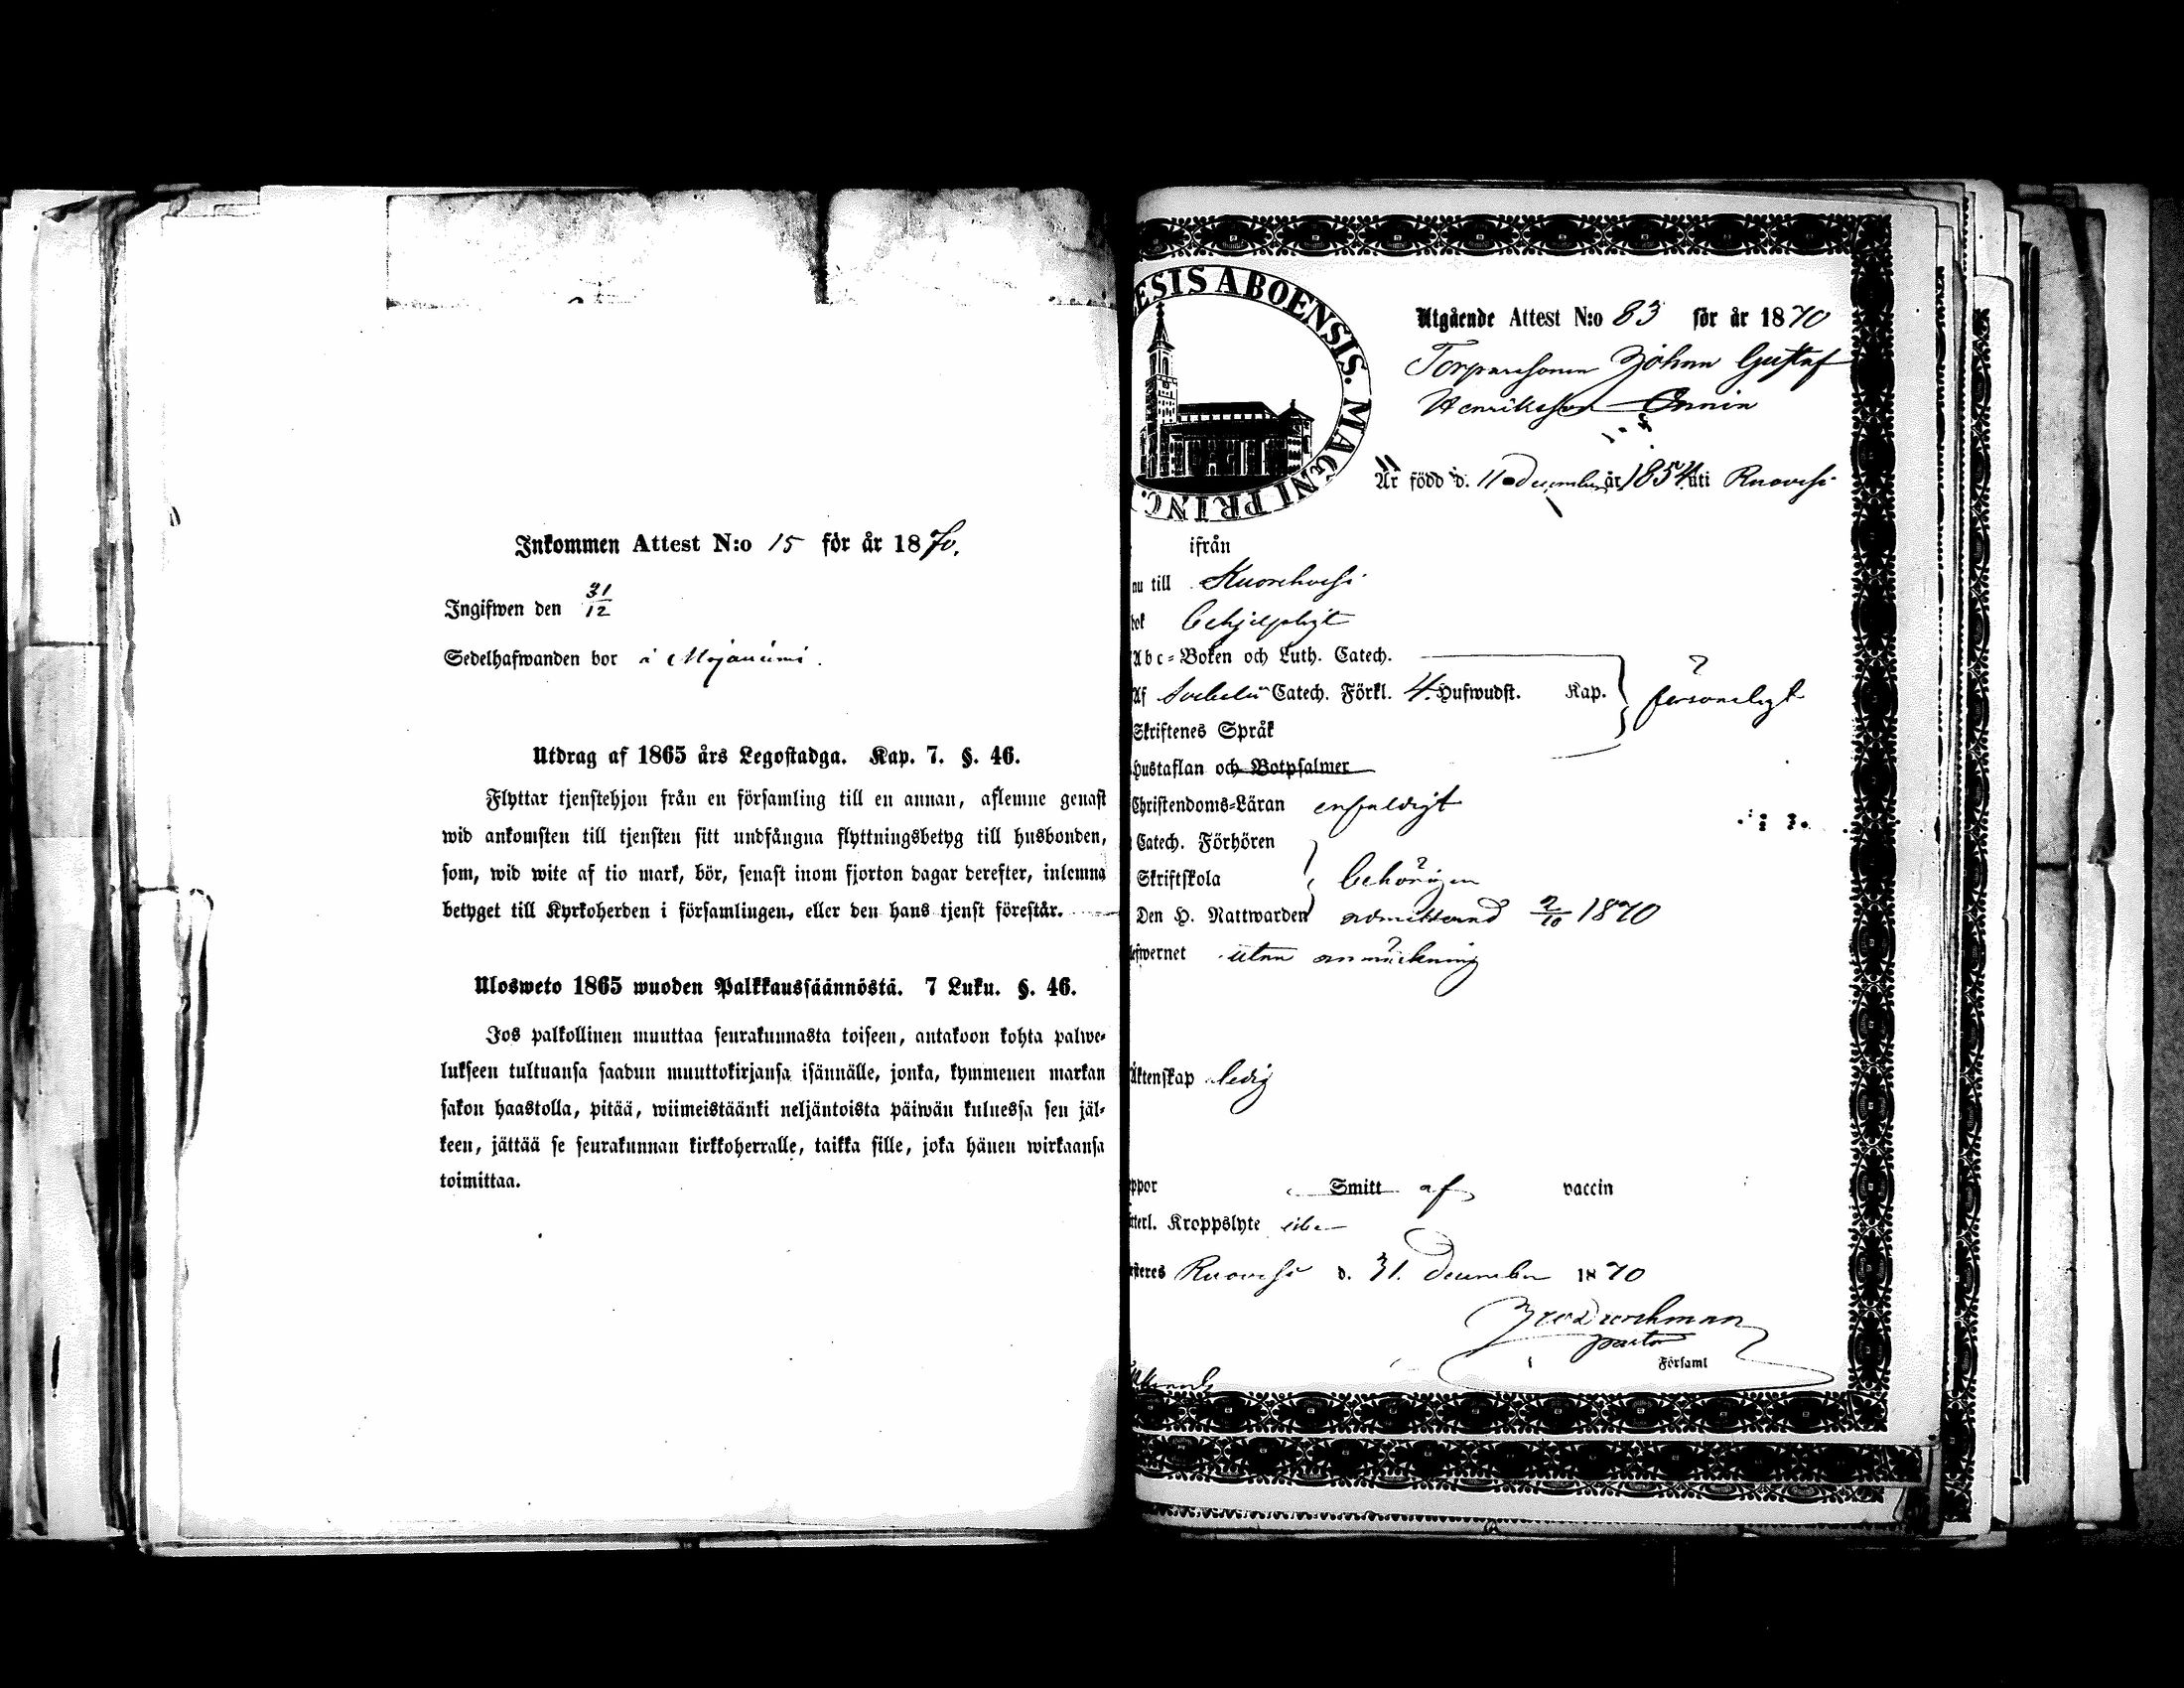 Inkommen Attest N:o 15 för år 1870.
Ingifwen den 31/12
Sedelhafwanden bor å
Utdrag af 1865 års Legostadga. Kap. 7. §. 46.
Flyttar tjenstehjon från en församling till en annan, aflemne genast
wid ankomsten till tjensten sitt undfångna flyttningsbetyg till husbonden,
som, wid wite af tio mark, bör, senast inom fjorton dagar derefter, inlemna
betyget till Kyrkoherden i församlingen, eller den hans tjenst förestår.
Ulosweto 1865 wuoden Palkkaussäännöstä. 7 Luku. §. 46.
Jos palkollinen muuttaa seurakunnasta toiseen, antakoon kohta palwe-
lukseen tultuansa saadun muuttokirjansa isännälle, jonka, kymmenen markan
sakon haastolla, pitää, wiimeistäänki neljäntoista päiwän kuluessa sen jäl-
keen, jättää se seurakunnan kirkkoherralle, taikka sille, joka hänen wirkaansa
toimittaa.
ESIS ABOENSIS. MAGNI PRINC.
Utgående Attest N:o 83 för år 1870
Torparesonen Johan Gustaf
Henriksson Onnin
Är född d. 11 December år 1854 uti Ruovesi
ifrån
nu till Kuorehvesi
bok behjelpligt
Abc-Boken och Luth. Catech.
Af Svebelii Catech. Förkl. 4. Hufwudst. Kap. försvarligt
Skriftenes Språk
Hustaflan och Botpsalmer
Christendoms-Läran enfaldigt
Catech. Förhören
Skriftskola behörigen
Den H. Nattwarden admitterad 2/10 1870
lefwernet utan anmärkning
Äktenskap ledig
ppor Smitt af vaccin
tterl. Kroppslyte
esteres Ruovesi d. 31. December 1870
pastor
Församl